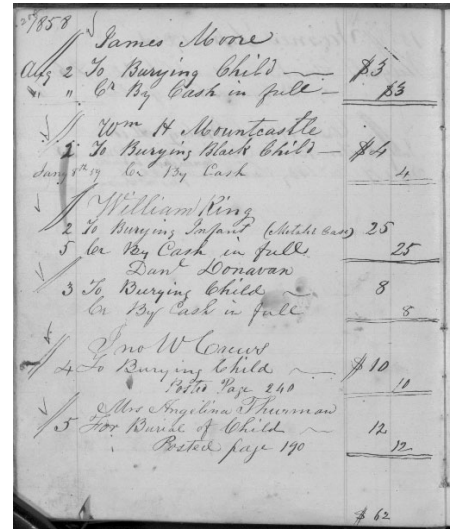 1858
James Moore
Aug 2 To Burying Child — $3
" " Cr By Cash in full — $3
Wm H Mountcastle
2 To Burying Black Child — $4
Jany 8th 59 Cr By Cash 4
William King
2 To Burying Infant (Metalic Case) 25
5 Cr By Cash in full 25
Danl Donavan
3 To Burying Child — 8
Cr By Cash in full 8
Jno W Crews
4 To Burying Child — $10
Posted Page 240 10
Mrs Angilina Thurman
5 For Burial of Child — 12
Posted page 190 12
$62